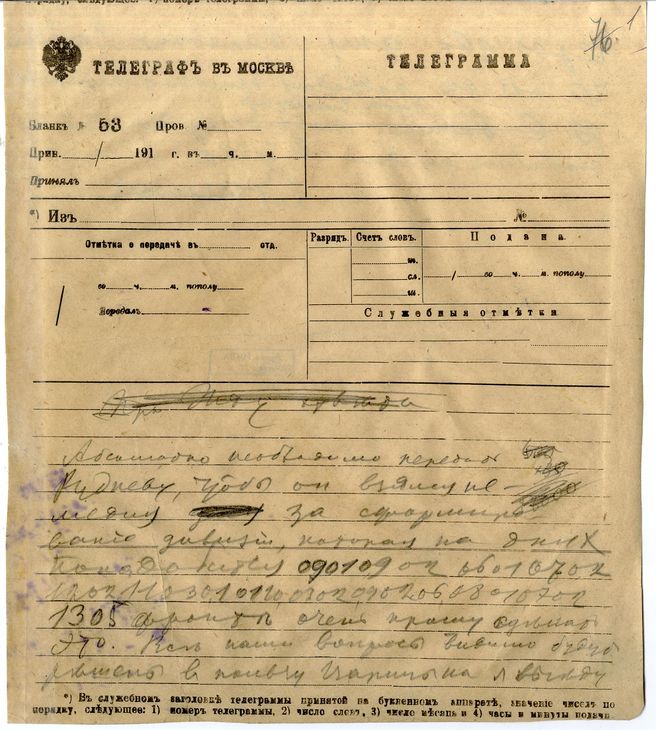 76. 1
ТЕЛЕГРАФЪ ВЪ МОСКВѢ
ТЕЛЕГРАММА
Бланкъ № 53 Пров. №
Прин. / 191 г. въ ч. м.
Принялъ
*) Изъ №
Отмѣтка о передачѣ въ отд.
/ со ч. м. пополу
Передалъ
Разрядъ. Счетъ словъ.
т.
сл.
ш.
Подана
/ со ч. м. пополу
Служебныя отмѣтки
Абсолютно необходимо передать
Рудневу, чтобы он взялся не
медля за сформиро
вание дивизии, которая на днях
090109
1305 фронты очень прошу сделать
это. Все наши вопросы видимо будут
решены в пользу Царицына я выеду
*) Въ служебномъ заголовкѣ телеграммы принятой на буквенномъ аппаратѣ, значеніе чиселъ по
порядку, слѣдующее: 1) номеръ телеграммы, 2) число словъ, 3) число мѣсяца и 4) часы и минуты подачи.